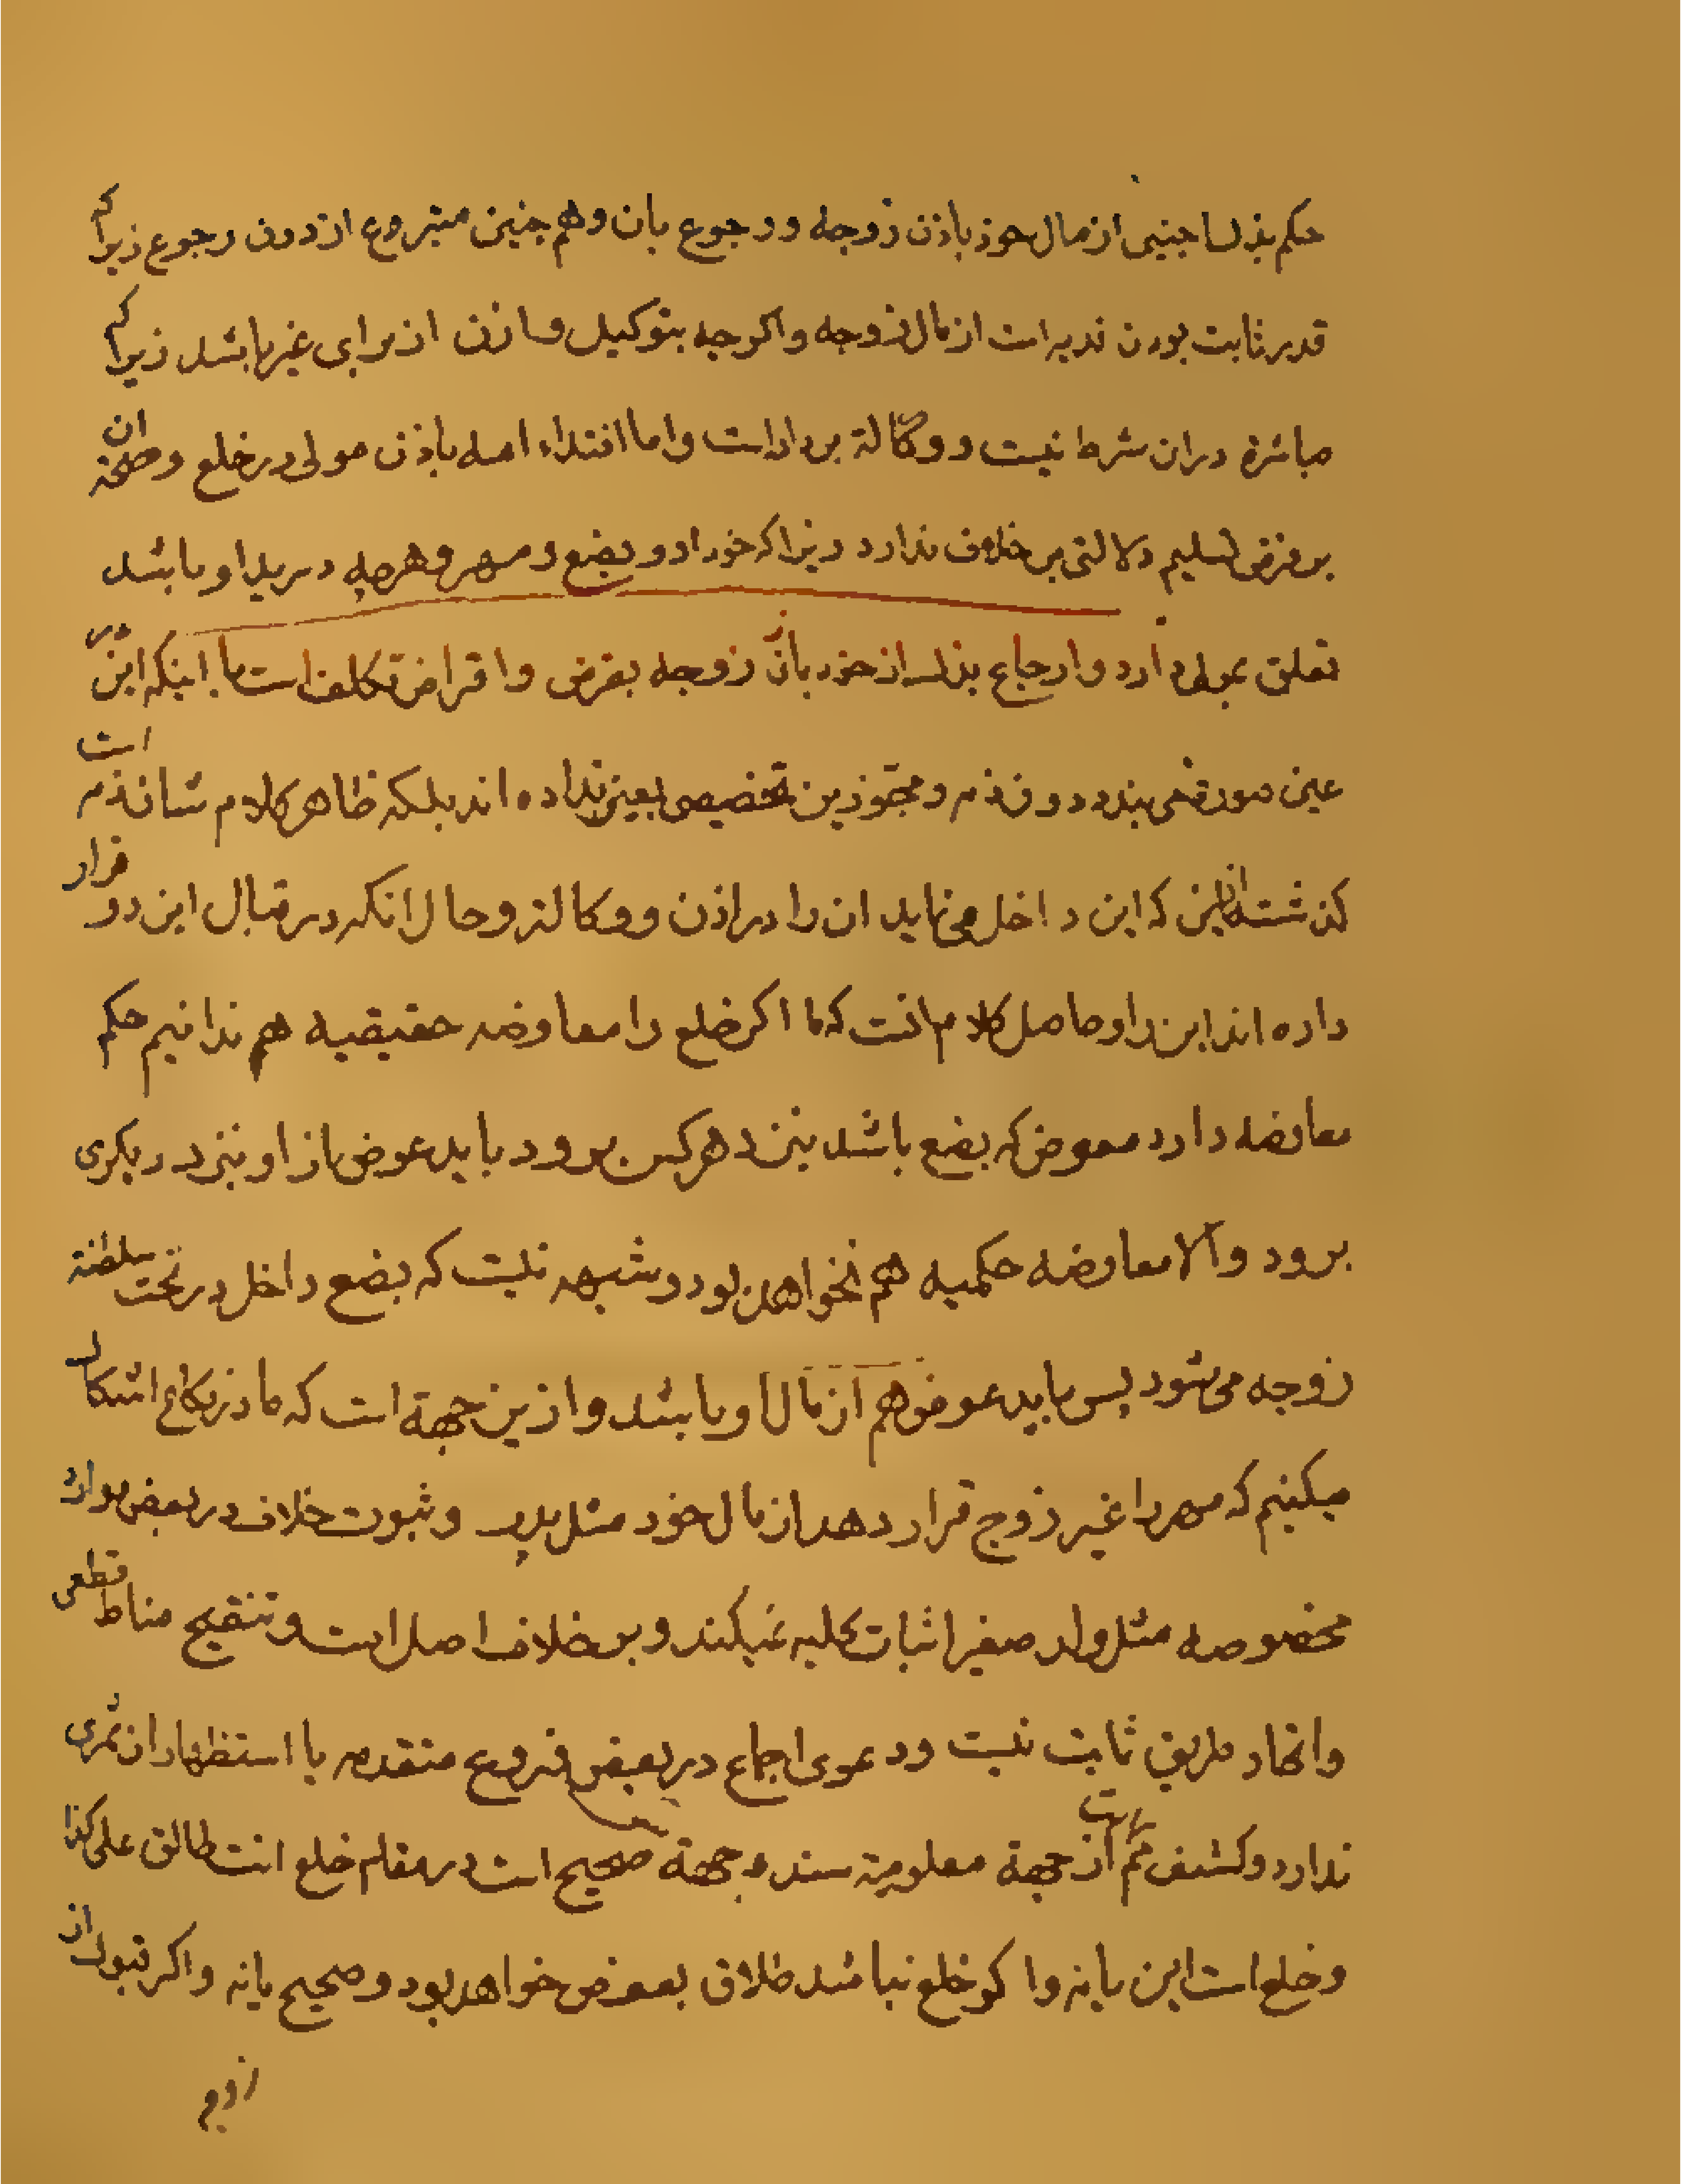 حکم بذل اجنبی از مال خود باذن زوجه و رجوع بان و هم چنین متبرع از دون رجوع زیرا که
قدر ثابت بودن فدیه است از مال زوجه و اکرچه بتوکیل و اذن از برای غیر باشد زیرا که
مباشرة دران شرط نیست و وکالة بردار است و اما افتداء امه باذن مولی در خلع و صحة ان
بر فرض تسلیم دلالتی بر خلاف ندارد زیرا که خود او و بضع و مهر و هرچه در ید او باشد
تعلق بمولی دارد و ارجاع بذل از خود باذن زوجه بقرض و اقراض تکلف است با اینکه این در
عین صورة می بندد و فرد و مجوزین تخصیص بعین نداده اند بلکه ظاهر کلام شان ذمه است
کذشته از این که این داخل می نماید ان را در اذن و وکالة و حال انکه در قبال این دو قرار
داده اند این را و حاصل کلام انست که ما اکر خلع را معاوضه حقیقیه هم ندانیم حکم
معاوضه دارد معوض که بضع باشد بنزد هر کس برود باید عوض از او بنزد دیکری
برود والا معاوضه حکمیه هم نخواهد بود و شبهه نیست که بضع داخل در تحت سلطنة
زوجه می شود پس باید عوض هم از مال او باشد و ازین جهة است که ما در نکاح اشکال
میکنیم که مهر را غیر زوج قرار دهد از مال خود مثل پدر و ثبوت خلاف در بعض موارد
مخصوصه مثل ولد صغیر اثبات کلیه نمیکند و بر خلاف اصل است و تنقیح مناط قطعی
و اتحاد طریق ثابت نیست و دعوی اجماع در بعض فروع متقدمه یا استظهار ان ثمری
ندارد و کشف هم از جهة معلومیة سند و جهة صحیح است در مقام خلع انت طالق علی کذا
و خلع است این یا نه و اکر خلع نباشد طلاق بعوض خواهد بود و صحیح یا نه و اکر قبول از